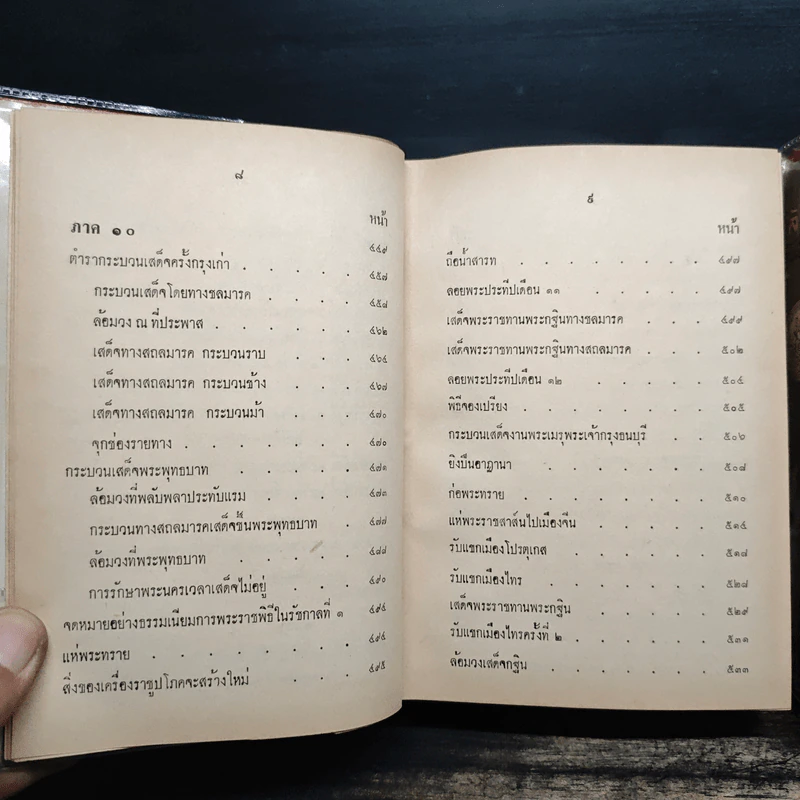 ๘
ภาค ๑๐ หน้า
ตำรากระบวนเสด็จครั้งกรุงเก่า . . . . . ๔๔๙
กระบวนเสด็จโดยทางชลมารค . . . . ๔๕๗
ล้อมวง ณ ที่ประพาส . . . . . ๔๕๘
เสด็จทางสถลมารค กระบวนราบ . . . ๔๖๒
เสด็จทางสถลมารค กระบวนช้าง . . . ๔๖๔
เสด็จทางสถลมารค กระบวนม้า . . . ๔๖๗
จุกช่องรายทาง . . . . . ๔๗๐
กระบวนเสด็จพระพุทธบาท . . . . . ๔๗๐
ล้อมวงที่พลับพลาประทับแรม . . . . ๔๗๑
กระบวนทางสถลมารคเสด็จขึ้นพระพุทธบาท . ๔๗๓
ล้อมวงที่พระพุทธบาท . . . . . ๔๗๗
การรักษาพระนครเวลาเสด็จไม่อยู่ . . . ๔๘๗
จดหมายอย่างธรรมเนียมการพระราชพิธีในรัชกาลที่ ๑ ๔๙๐
แห่พระทราย . . . . . . . ๔๙๔
สิ่งของเครื่องราชูปโภคจะสร้างใหม่ . . . ๔๙๔
๔๙๕
๙
หน้า
ถือน้ำสารท . . . . . . . ๔๙๗
ลอยพระประทีปเดือน ๑๑ . . . . . ๔๙๗
เสด็จพระราชทานพระกฐินทางชลมารค . . . ๔๙๙
เสด็จพระราชทานพระกฐินทางสถลมารค . . . ๕๐๒
ลอยพระประทีปเดือน ๑๒ . . . . . ๕๐๔
พิธีจองเปรียง . . . . . . ๕๐๕
กระบวนเสด็จงานพระเมรุพระเจ้ากรุงธนบุรี . . ๕๐๖
ยิงปืนอาฏานา . . . . . . ๕๐๘
ก่อพระทราย . . . . . . ๕๑๐
แห่พระราชสาส์นไปเมืองจีน . . . . . ๕๑๔
รับแขกเมืองโปรตุเกส . . . . . ๕๑๗
รับแขกเมืองไทร . . . . . . ๕๒๗
เสด็จพระราชทานพระกฐิน . . . . . ๕๒๙
รับแขกเมืองไทรครั้งที่ ๒ . . . . . ๕๓๑
ล้อมวงเสด็จกฐิน . . . . . . ๕๓๓